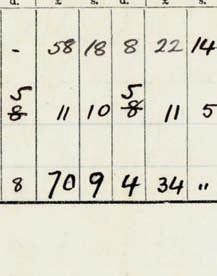 d. £ s. d. £ s.
- 58 18 8 22 14
5 5
8 11 10 8 11 5
8 70 9 4 34 "